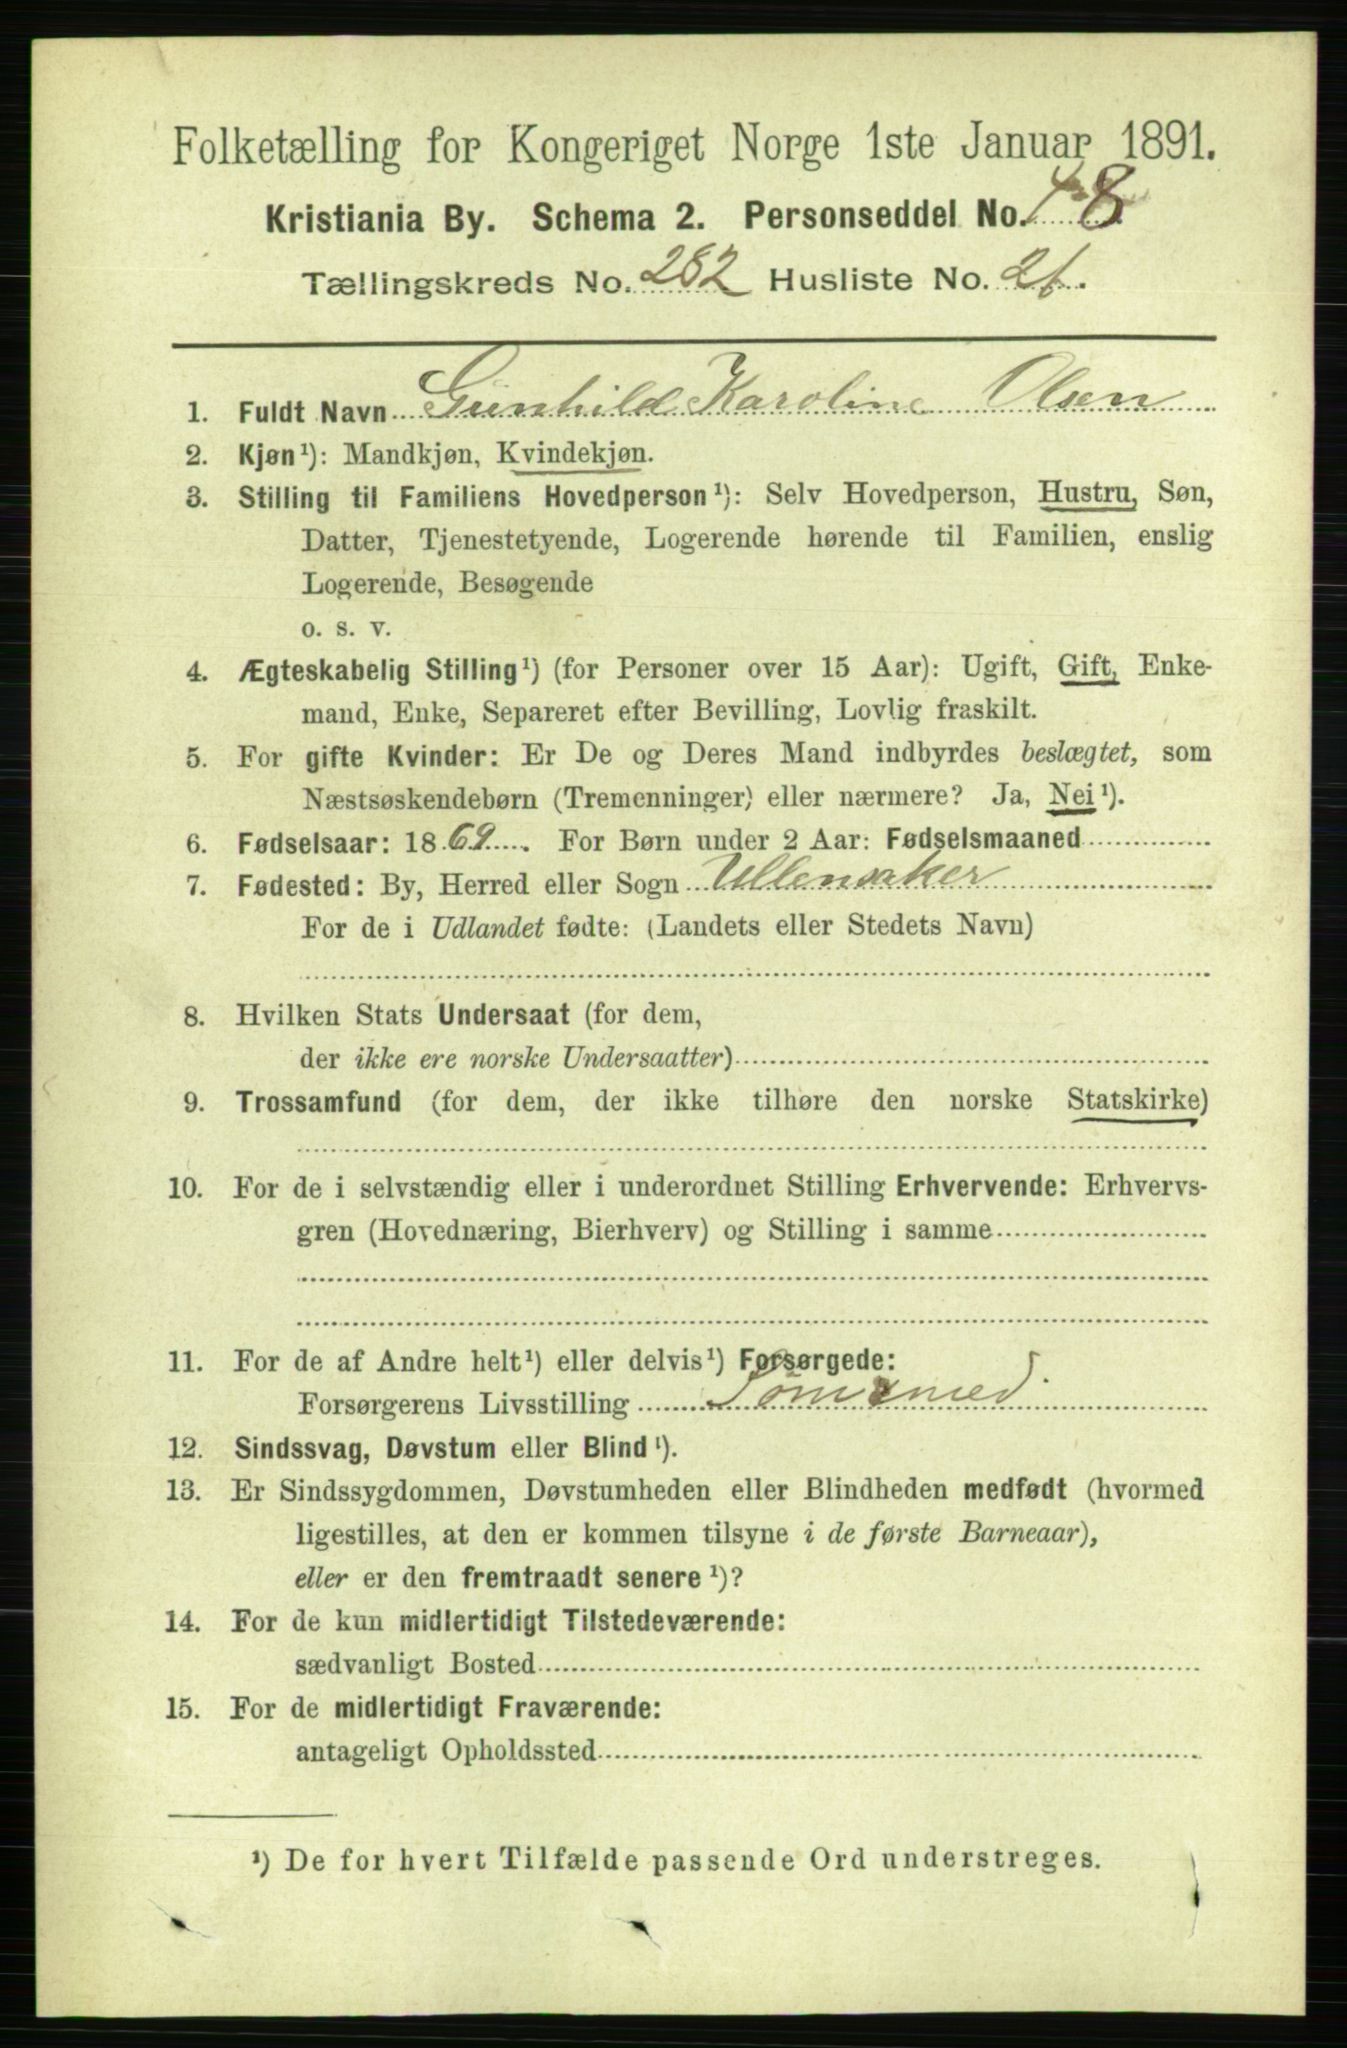 Folketælling for Kongeriget Norge 1ste Januar 1891.
Kristiania By. Schema 2. Personseddel No. 8
Tællingskreds No. 282 Husliste No. 26.
1. Fuldt Navn Gunhild Karoline Olsen
2. Kjøn¹): Mandkjøn, Kvindekjøn.
3. Stilling til Familiens Hovedperson¹): Selv Hovedperson, Hustru, Søn,
Datter, Tjenestetyende, Logerende hørende til Familien, enslig
Logerende, Besøgende
o. s. v.
4. Ægteskabelig Stilling¹) (for Personer over 15 Aar): Ugift, Gift, Enke-
mand, Enke, Separeret efter Bevilling, Lovlig fraskilt.
5. For gifte Kvinder: Er De og Deres Mand indbyrdes beslægtet, som
Næstsøskendebørn (Tremenninger) eller nærmere? Ja, Nei¹).
6. Fødselsaar: 1869. For Børn under 2 Aar: Fødselsmaaned
7. Fødested: By, Herred eller Sogn Ullensaker
For de i Udlandet fødte: (Landets eller Stedets Navn)
8. Hvilken Stats Undersaat (for dem,
der ikke ere norske Undersaatter)
9. Trossamfund (for dem, der ikke tilhøre den norske Statskirke)
10. For de i selvstændig eller i underordnet Stilling Erhvervende: Erhvervs-
gren (Hovednæring, Bierhverv) og Stilling i samme
11. For de af Andre helt¹) eller delvis¹) Forsørgede:
Forsørgerens Livsstilling
12. Sindssvag, Døvstum eller Blind¹).
13. Er Sindssygdommen, Døvstumheden eller Blindheden medfødt (hvormed
ligestilles, at den er kommen tilsyne i de første Barneaar),
eller er den fremtraadt senere¹)?
14. For de kun midlertidigt Tilstedeværende:
sædvanligt Bosted
15. For de midlertidigt Fraværende:
antageligt Opholdssted
¹) De for hvert Tilfælde passende Ord understreges.